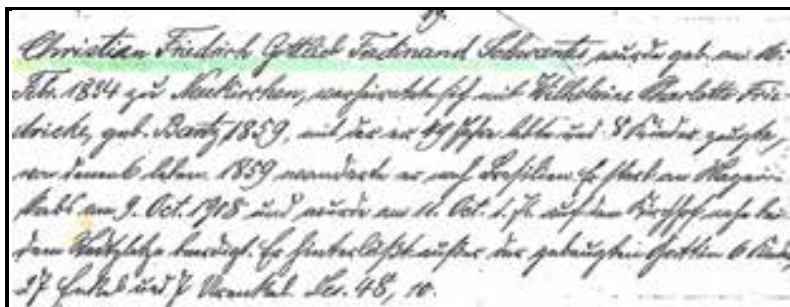 19.
Christian Friedrich Gottlieb Ferdinand Schwantes wurde geb. am 16.
Febr. 1834 zu Neukirchen, verheiratete sich mit Wilhelmine Charlotte Frie-
dricke, geb. Bantz 1859, mit der er 49 Jahre lebte und 8 Kinder zeugte,
von denen 6 leben. 1859 wanderte er nach Brasilien. Er starb am
am 9. Oct. 1908 und wurde am 11. Oct. d. J. auf dem Kirchhof nahe bei
dem beerdigt. Er hinterläßt außer der gebeugten Gattin 6 Kinder,
37 Enkel und 7 Urenkel. Jes. 48, 10.